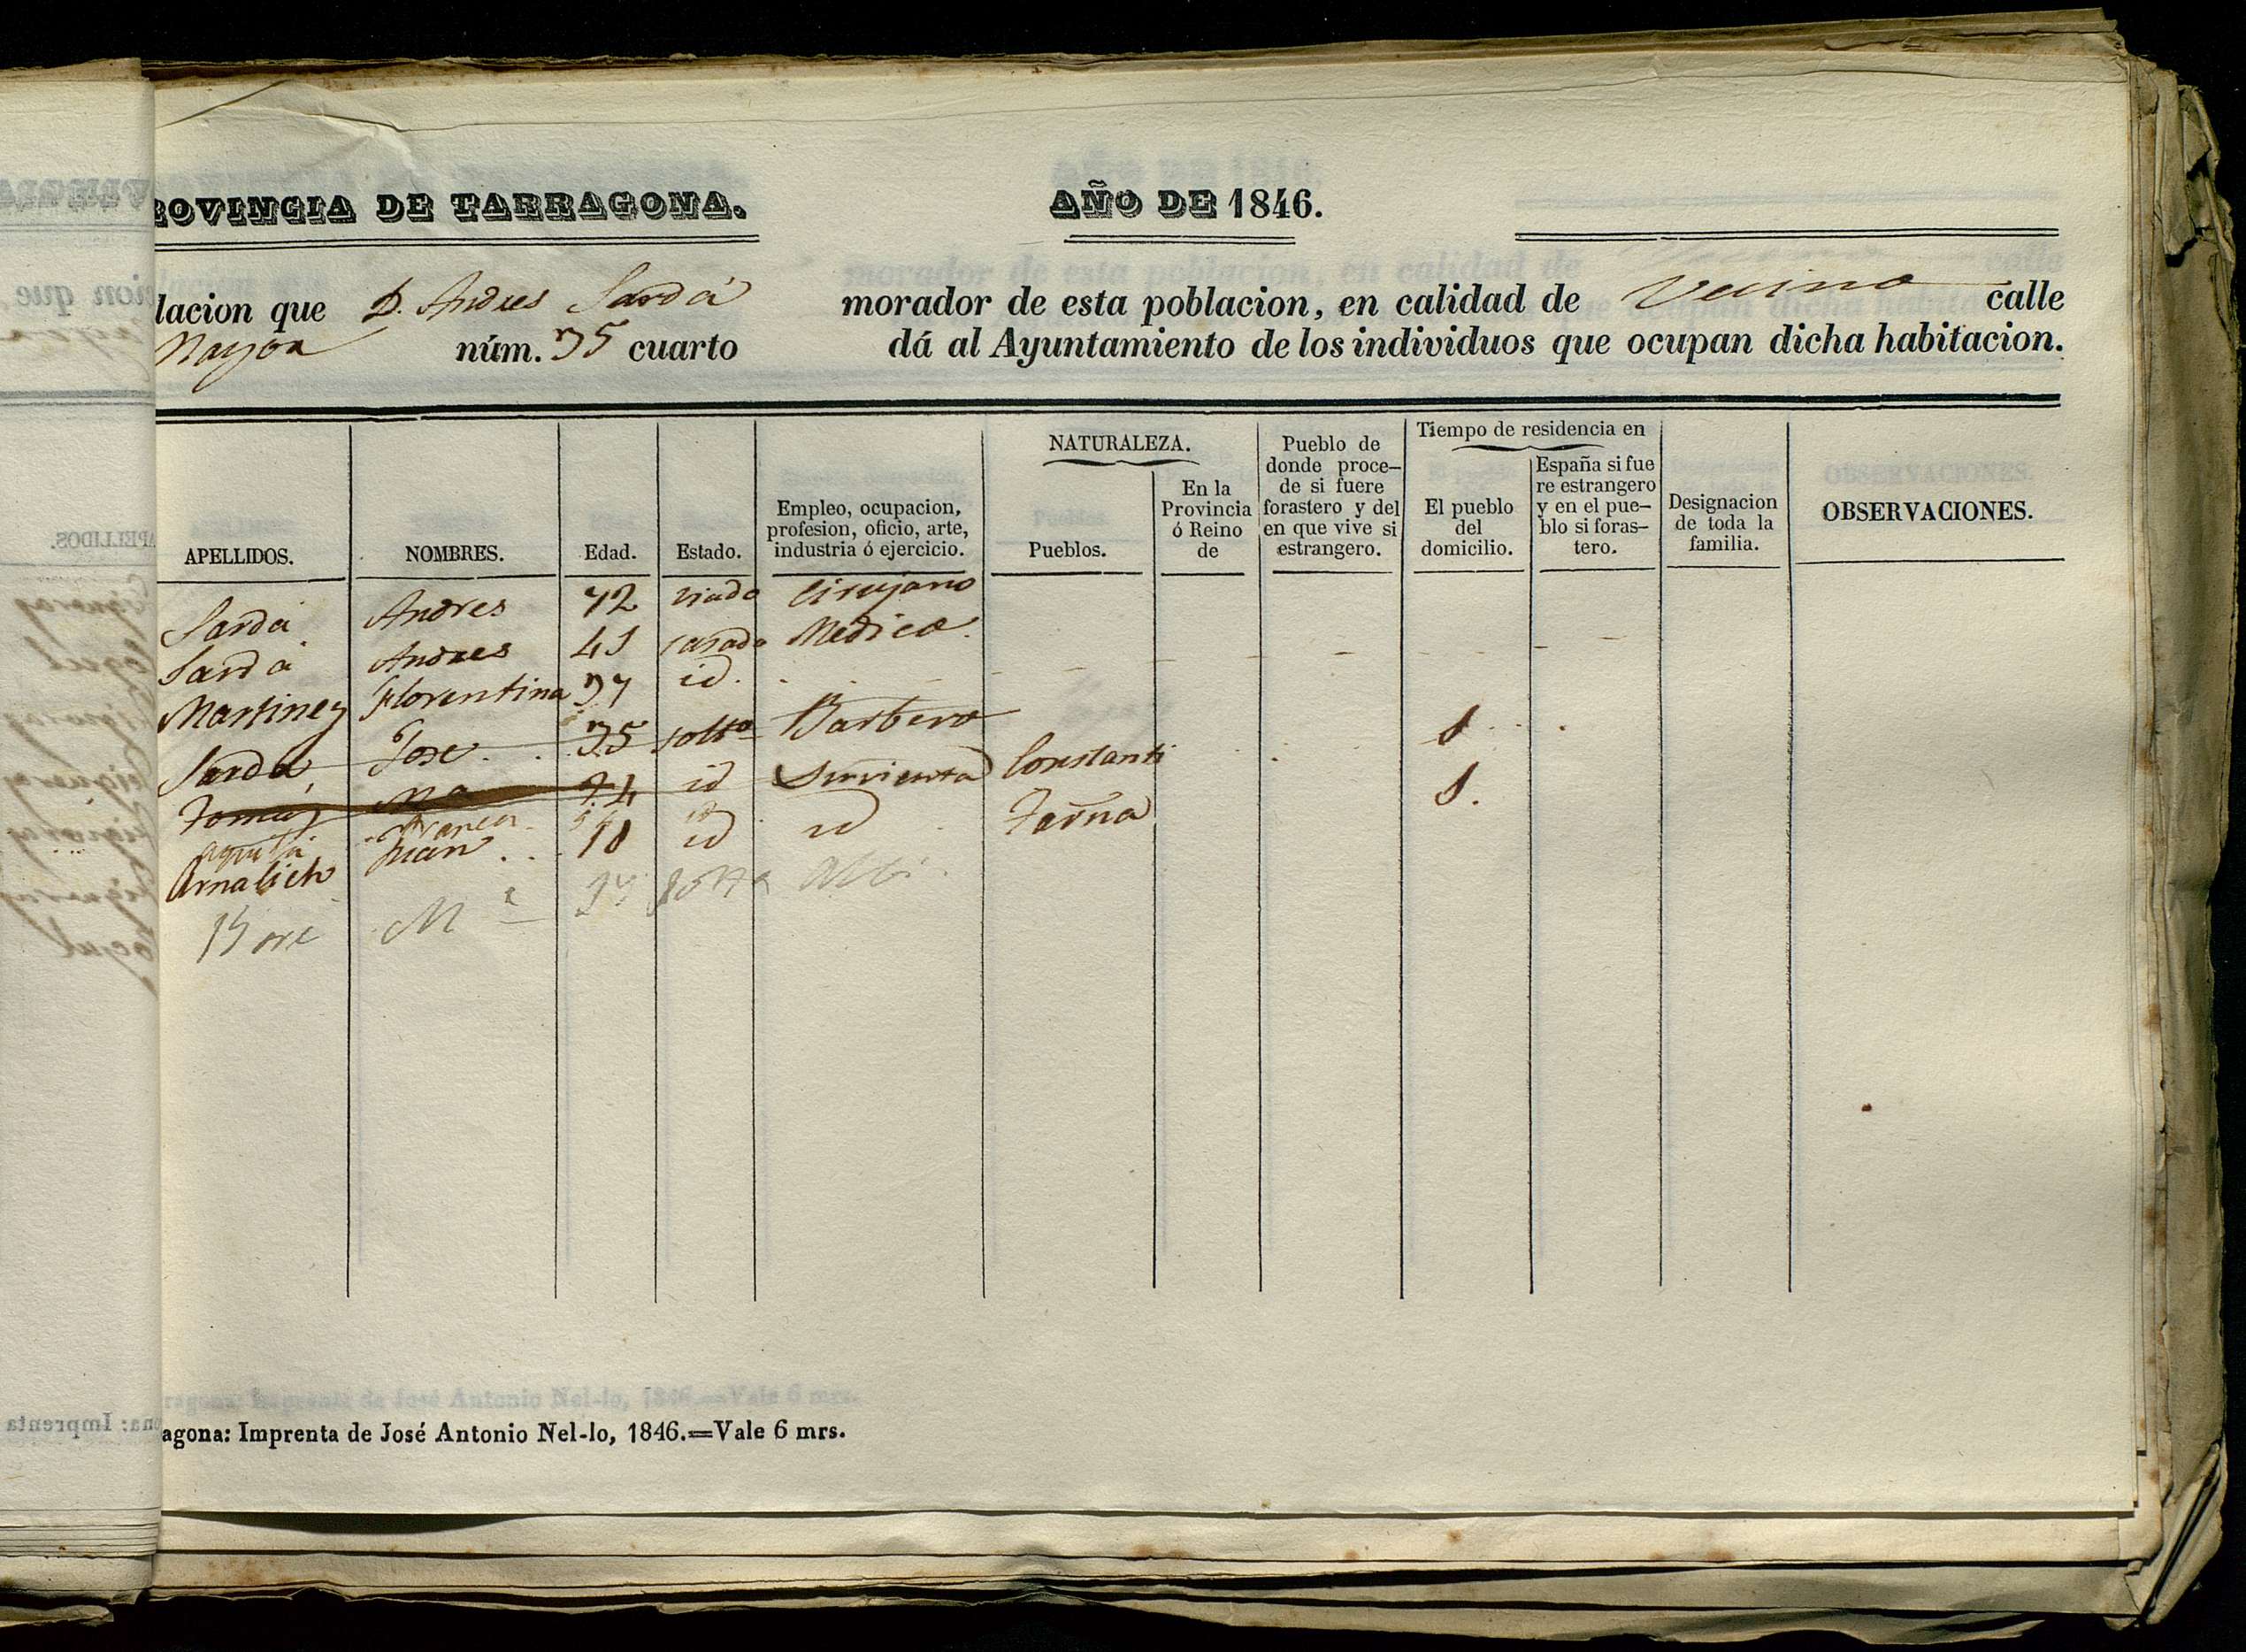 ROVINCIA DE TARRAGONA. AÑO DE 1846.
lacion que D. Andres Sardá morador de esta poblacion, en calidad de Vecino calle
Mayor núm. 35 cuarto dá al Ayuntamiento de los individuos que ocupan dicha habitacion.
APELLIDOS. NOMBRES. Edad. Estado. Empleo, ocupacion, profesion, oficio, arte, industria ó ejercicio. NATURALEZA. Pueblos. En la Provincia ó Reino de Pueblo de donde proce- de si fuere forastero y del en que vive si estrangero. Tiempo de residencia en El pueblo del domicilio. España si fue re estrangero y en el pue- blo si foras- tero. Designacion de toda la familia. OBSERVACIONES.
Sardá Andres 72 viudo Cirujano
Sardá Andres 41 casado Medico
Martinez Florentina 37 id.
Sardá Jose 35 solto Barbero
Tomas Ma 24 id Sirvienta Constanti 1
Franca
Arnabich Juan 18 id id Tarna 1.
Ma solta Albi
agona: Imprenta de José Antonio Nel-lo, 1846.=Vale 6 mrs.